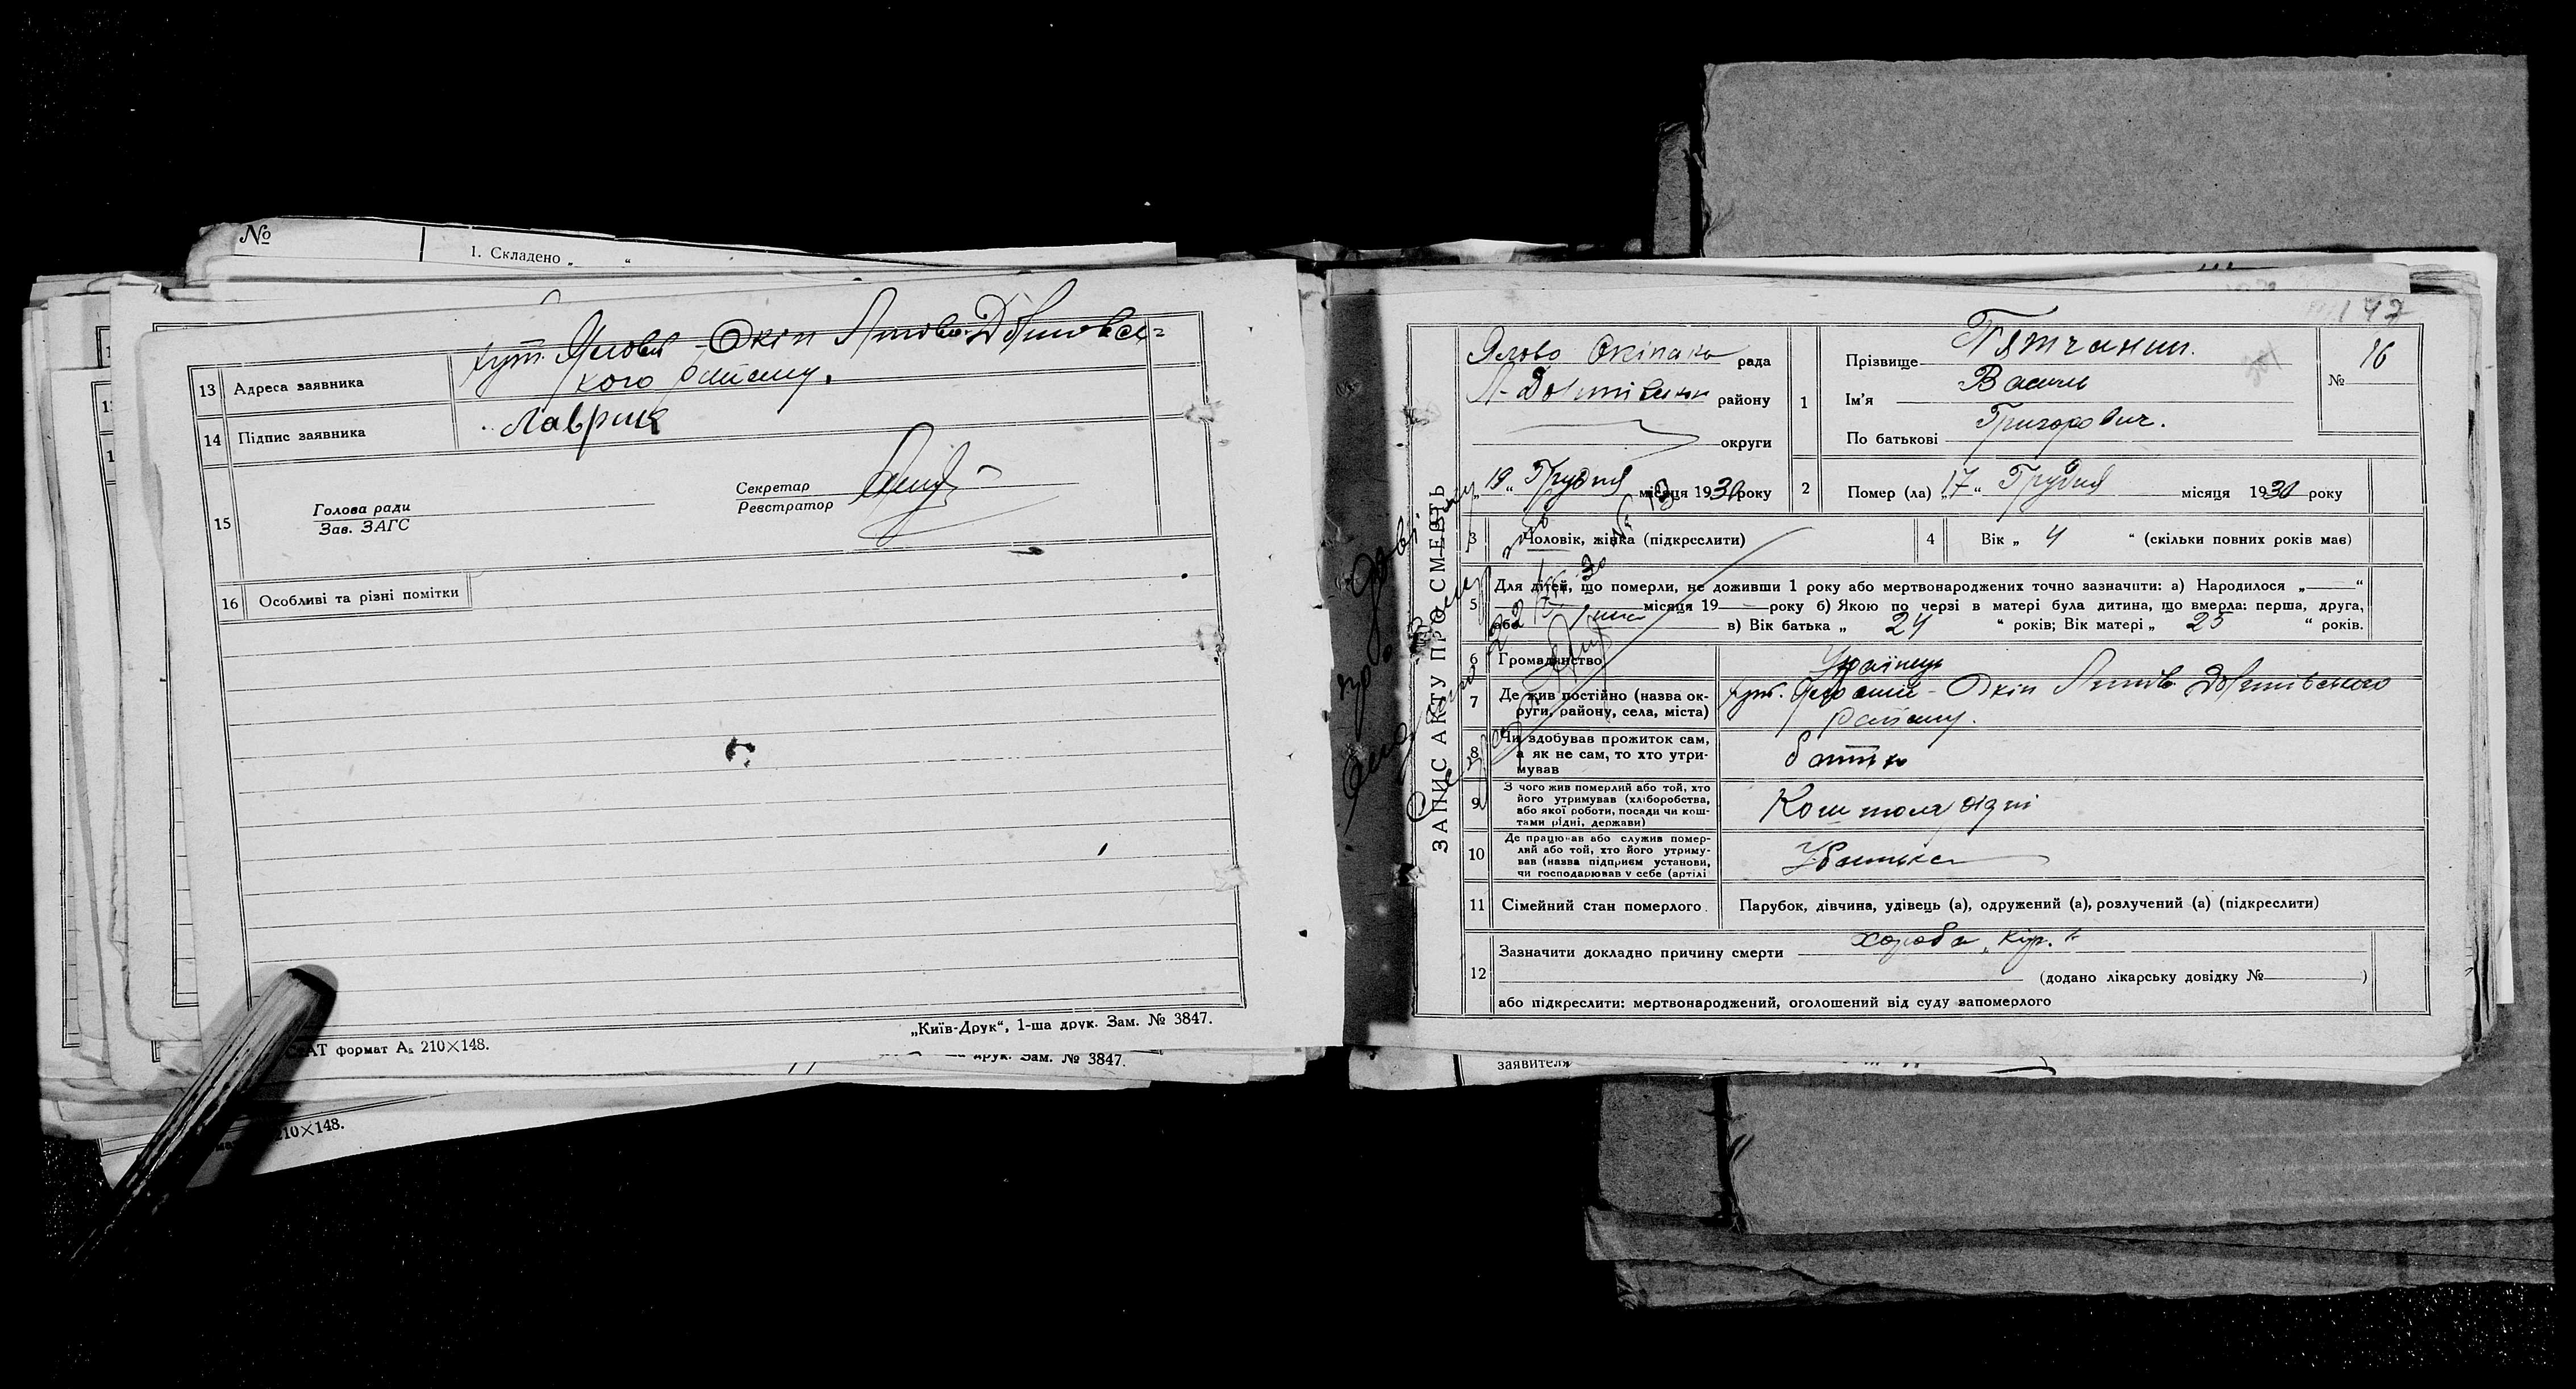 №
1. Складено „ “
13 Адреса заявника
хут. Ялова - Окіп Липово-Долиновсь=
кого району.
14 Підпис заявника
Лаврик
15
Голова ради
Зав. ЗАГС
Секретар
Реєстратор
16 Особливі та різні помітки
формат А₅ 210×148.
„Київ-Друк“, 1-ша друк. Зам. № 3847.
друк. Зам. № 3847.
210×148.
147
ЗАПИС АКТУ ПРО СМЕРТЬ
Ялово Окіпська рада
Л-Долинівськ району
округи
„19“ Грудня місяця 1930 року
1
Прізвище
Ім'я Василь
По батькові Григорович.
№ 16
2 Помер (ла) „17“ Грудня місяця 1930 року
3 Чоловік, жінка (підкреслити)
4 Вік „ 4 “ (скільки повних років має)
5 Для дітей, що померли, не доживши 1 року або мертвонароджених точно зазначити: а) Народилося „ “
місяця 19 року б) Якою по черзі в матері була дитина, що вмерла: перша, друга,
або в) Вік батька „ 24 “ років; Вік матері „ 25 “ років.
6 Громадянство Українець
7 Де жив постійно (назва ок-
руги, району, села, міста)
хут. Яловий - Окіп Липов. Долинівського
району.
8 Чи здобував прожиток сам,
а як не сам, то хто утри-
мував
батько
9 З чого жив померлий або той, хто
його утримував (хліборобства,
або якої роботи, посади чи кош-
тами рідні, держави)
Коштом рідні
10 Де працював або служив помер-
лий або той, хто його утриму-
вав (назва підприєм установи,
чи господарював у себе (артілі
У батька
11 Сімейний стан померлого. Парубок, дівчина, удівець (а), одружений (а), розлучений (а) (підкреслити)
12 Зазначити докладно причину смерти хороба „кір.“
(додано лікарську довідку № )
або підкреслити: мертвонароджений, оголошений від суду запомерлого
заявителя